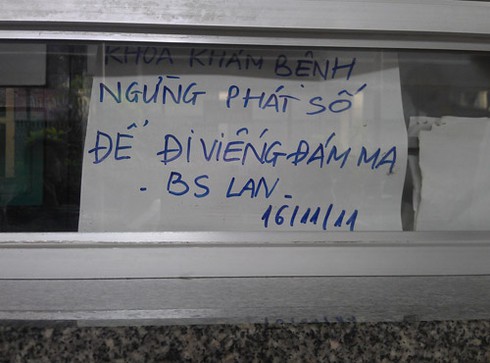 KHOA KHÁM BỆNH
NGỪNG PHÁT SỐ
ĐỂ ĐI VIẾNG ĐÁM MA
- BS LAN -
16/11/11